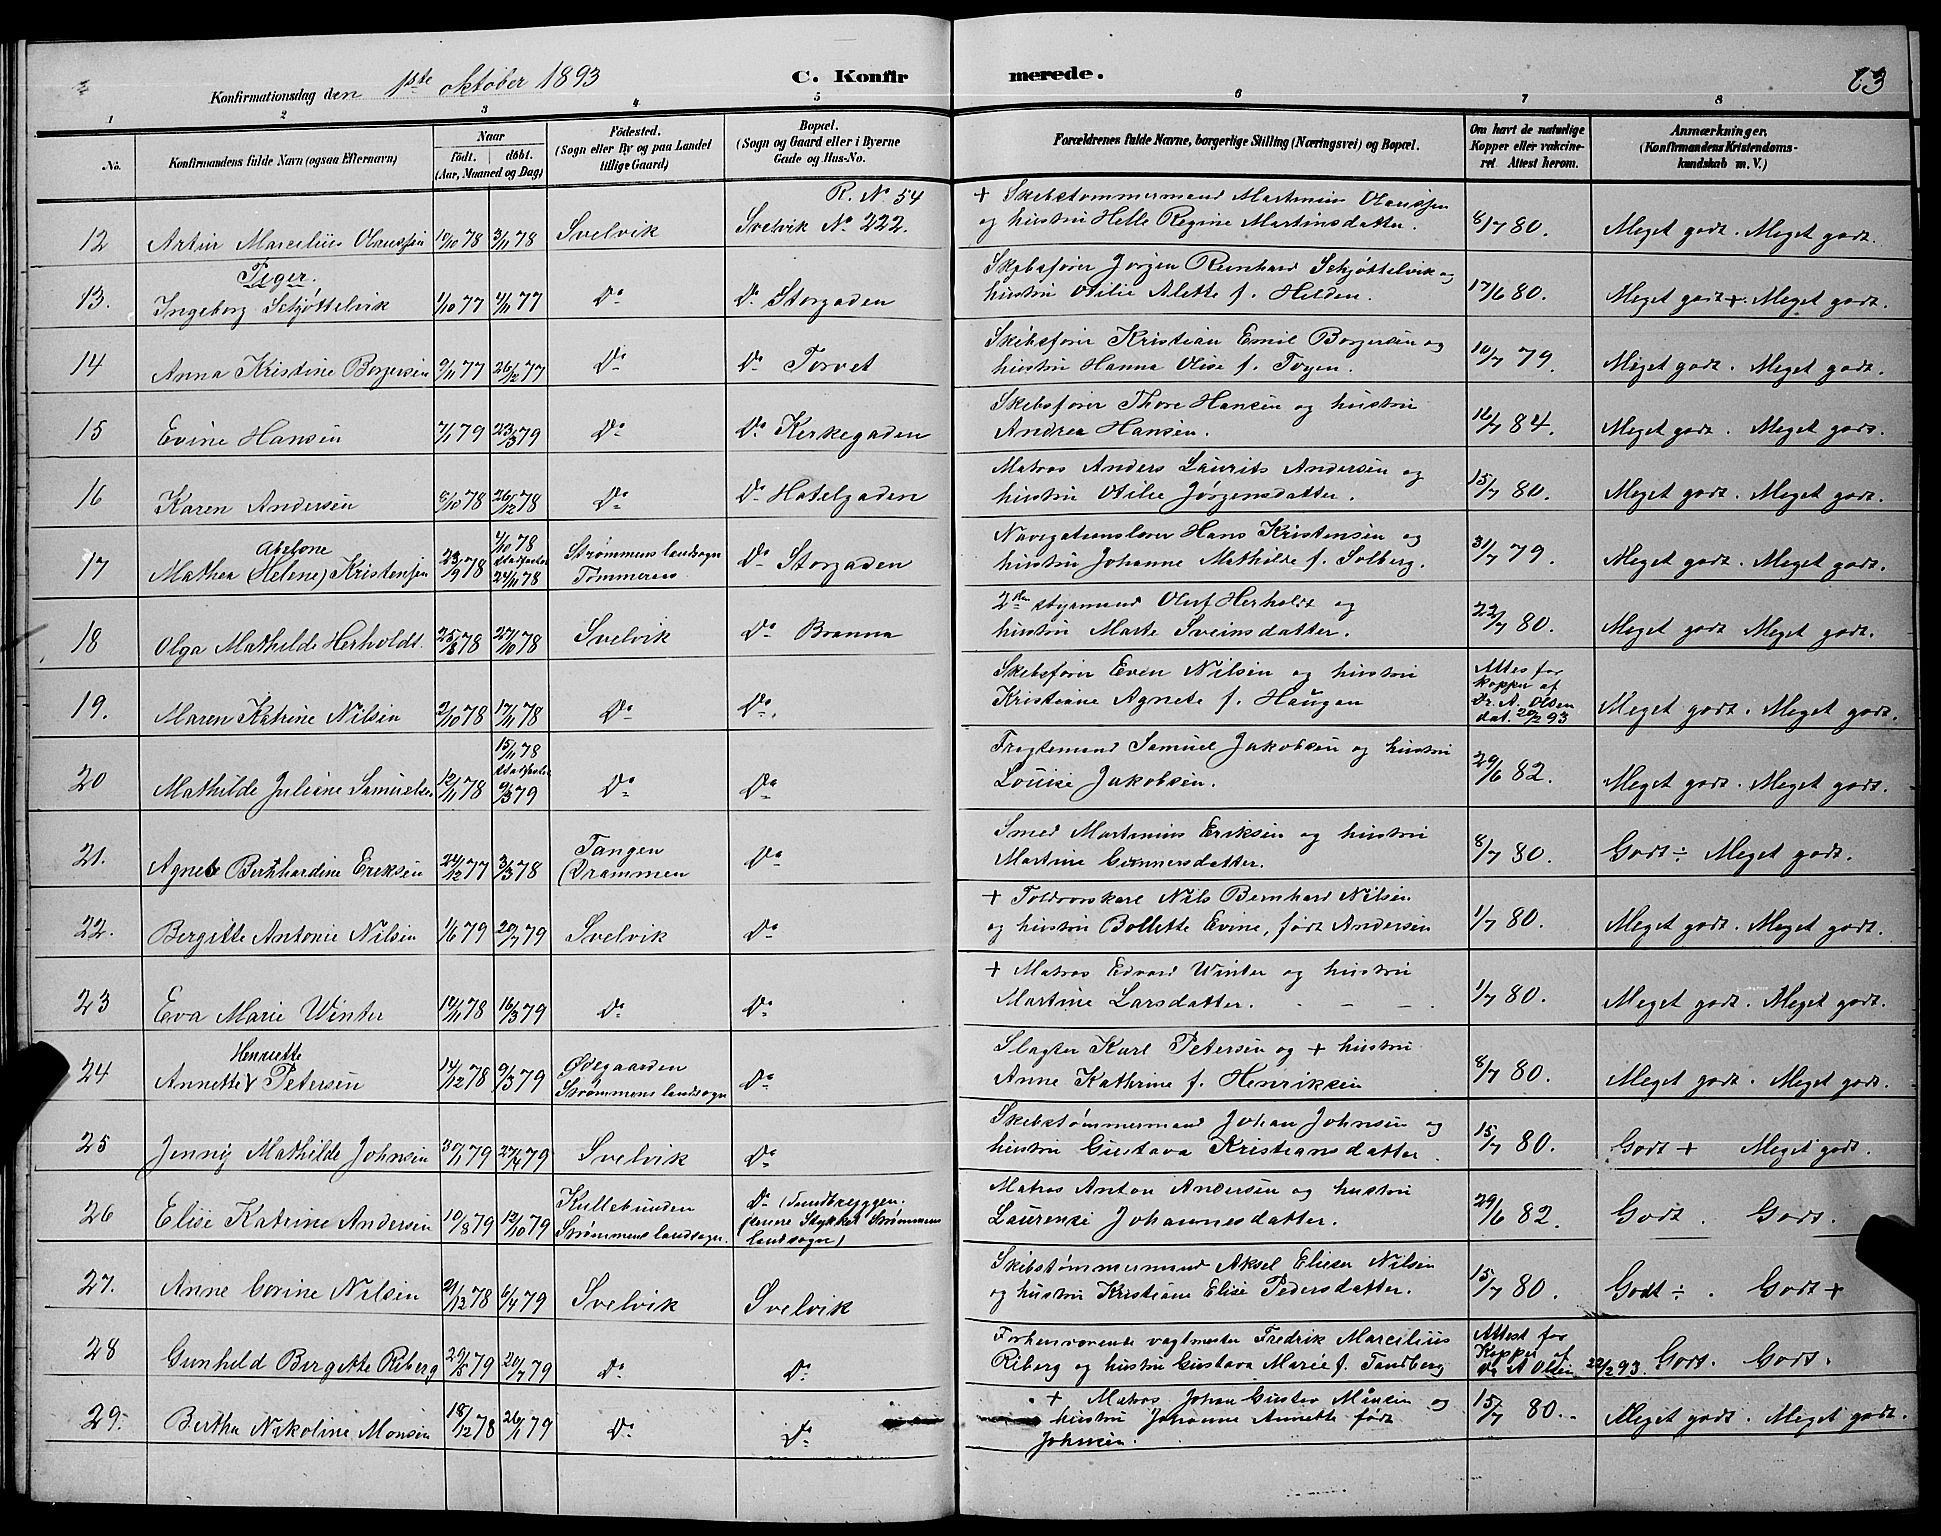 Konfirmationsdag den 1ste oktober 1893
C. Konfirmerede.
63
1 2 3 4 5 6 7 8
No.
Konfirmandens fulde Navn (ogsaa Efternavn)
Naar født, døbt. (Aar, Maaned og Dag)
Fødested. (Sogn eller By og paa Landet tillige Gaard)
Bopæl. (Sogn og Gaard eller i Byerne Gade og Hus-No.
Forældrenes fulde Navne, borgerlige Stilling (Næringsvei) og Bopæl.
Om havt de naturlige Kopper eller vakcineret Attest herom.
Anmærkninger. (Konfirmandens Kristendomskundskab m. V.)
R. No 54
12 Artur Marcelius Olaussen 19/10 78 3/11 78 Svelvik Svelvik No 222. + Skibstømmermand Martinius Olaussen og hustru Helle Regine Martinsdatter. 8/7 80. Meget godt. Meget godt.
Piger.
13. Ingeborg Schjøttelvik 1/10 77 4/11 77 Do Do Storgaden Skibsfører Jørgen Reinhard Schjøttelvik og hustru Otilie Alette f. Helden. 17/6 80. Meget godt +. Meget godt.
14 Anna Kristine Borgersen 9/11 77 26/12 77 Do Do Torvet Skibsfører Kristian Emil Borgersen og hustru Hanna Olise f. Tygen. 10/7 79. Meget godt. Meget godt.
15 Evine Hansen 7/1 79 23/3 79 Do Do Kirkegaden Skibsfører Thore Hansen og hustru Andrea Hansen. 16/7 84. Meget godt. Meget godt.
16 Karen Andersen 8/10 78 26/12 78 Do Do Hotelgaden Matros Anders Laurits Andersen og hustru Otilie Jørgensdatter. 15/7 80. Meget godt. Meget godt.
17 Mathea Abelone (Helene) Kristensen 23/9 78 4/10 78 Stadfæstet 24/11 78 Strømmens landsogn Tømmeraas Do Storgaden Navigationslærer Hans Kristensen og hustru Johanne Mathilde f. Solberg. 31/7 79. Meget godt. Meget godt.
18 Olga Mathilde Herholdt. 25/8 78 27/10 78 Svelvik Do Branna 2den styrmand Oluf Herholdt og hustru Marte Sveinsdatter. 22/7 80. Meget godt Meget godt.
19. Maren Katrine Nilsen 2/10 78 17/11 78 Do Do. Skibsfører Even Nilsen og hustru Kristiane Agnete f. Haugen Attes for kopper af Dr. A. Olsen dat. 20/2 93 Meget godt. Meget godt.
20 Mathilde Juliane Samuelsen 12/11 78 15/11 78 Stadfæstet 9/3 79 Do Do Fragtemand Samuel Jakobsen og hustru Louise Jakobsen. 29/6 82. Meget godt. Meget godt.
21. Agnete Bernhardine Eriksen 24/12 77 3/3 78 Tangen Drammen Do Smed Martinius Eriksen og hustru Martine Gunnersdatter. 8/7 80. Godt ÷ Meget godt.
22. Bergitte Antonie Nilsen 1/6 79 20/7 79 Svelvik Do + Toldvorskarl Nils Bernhard Nilsen og hustru Bollette Evine, født Andersen 1/7 80. Meget godt. Meget godt.
23 Eva Marie Winter 19/11 78 16/3 79 Do Do + Matros Edvard Winter og hustru Martine Larsdatter. 1/7 80. Meget godt. Meget godt.
24 Annette Henriette Petersen 14/12 78 9/3 79 Ødegaarden Strømmens landsogn Do Slagter Karl Petersen og + hustru Anne Kathrine f. Henriksen 8/7 80. Meget godt. Meget godt.
25 Jenny Mathilde Johnsen 30/1 79 27/4 79 Svelvik Do Skibstømmermand Johan Johnsen og hustru Gustava Kristiansdatter. 15/7 80. Godt + Meget godt.
26 Elise Katrine Andersen 10/8 79 12/10 79 Kullebunden Strømmens landsogn. Do (Sandbryggen. Strømmens landsogn) Matros Anton Andersen og hustru Laurense Johannesdatter. 29/6 82. Godt. Godt.
27. Anne Corine Nilsen 21/12 78 6/4 79 Svelvik Svelvik Skibstømmermand Aksel Elieser Nilsen og hustru Kristiane Elise Pedersdatter. 15/7 80. Godt ÷. Godt +
28 Gunhild Bergette Riberg 29/5 79 20/7 79 Do Do Forhenværende vagtmester Fredrik Marcilius Riberg og hustru Gustava Marie f. Tandberg Attest for Kopper af Dr A Olsen 22/2 93. Godt. Godt.
29. Bertha Nikoline Monsen 18/12 78 26/1 79 Do Do + Matros Johan Gustav Monsen og hustru Johanne Annette født Johnsen. 15/7 80. Meget godt. Meget godt.